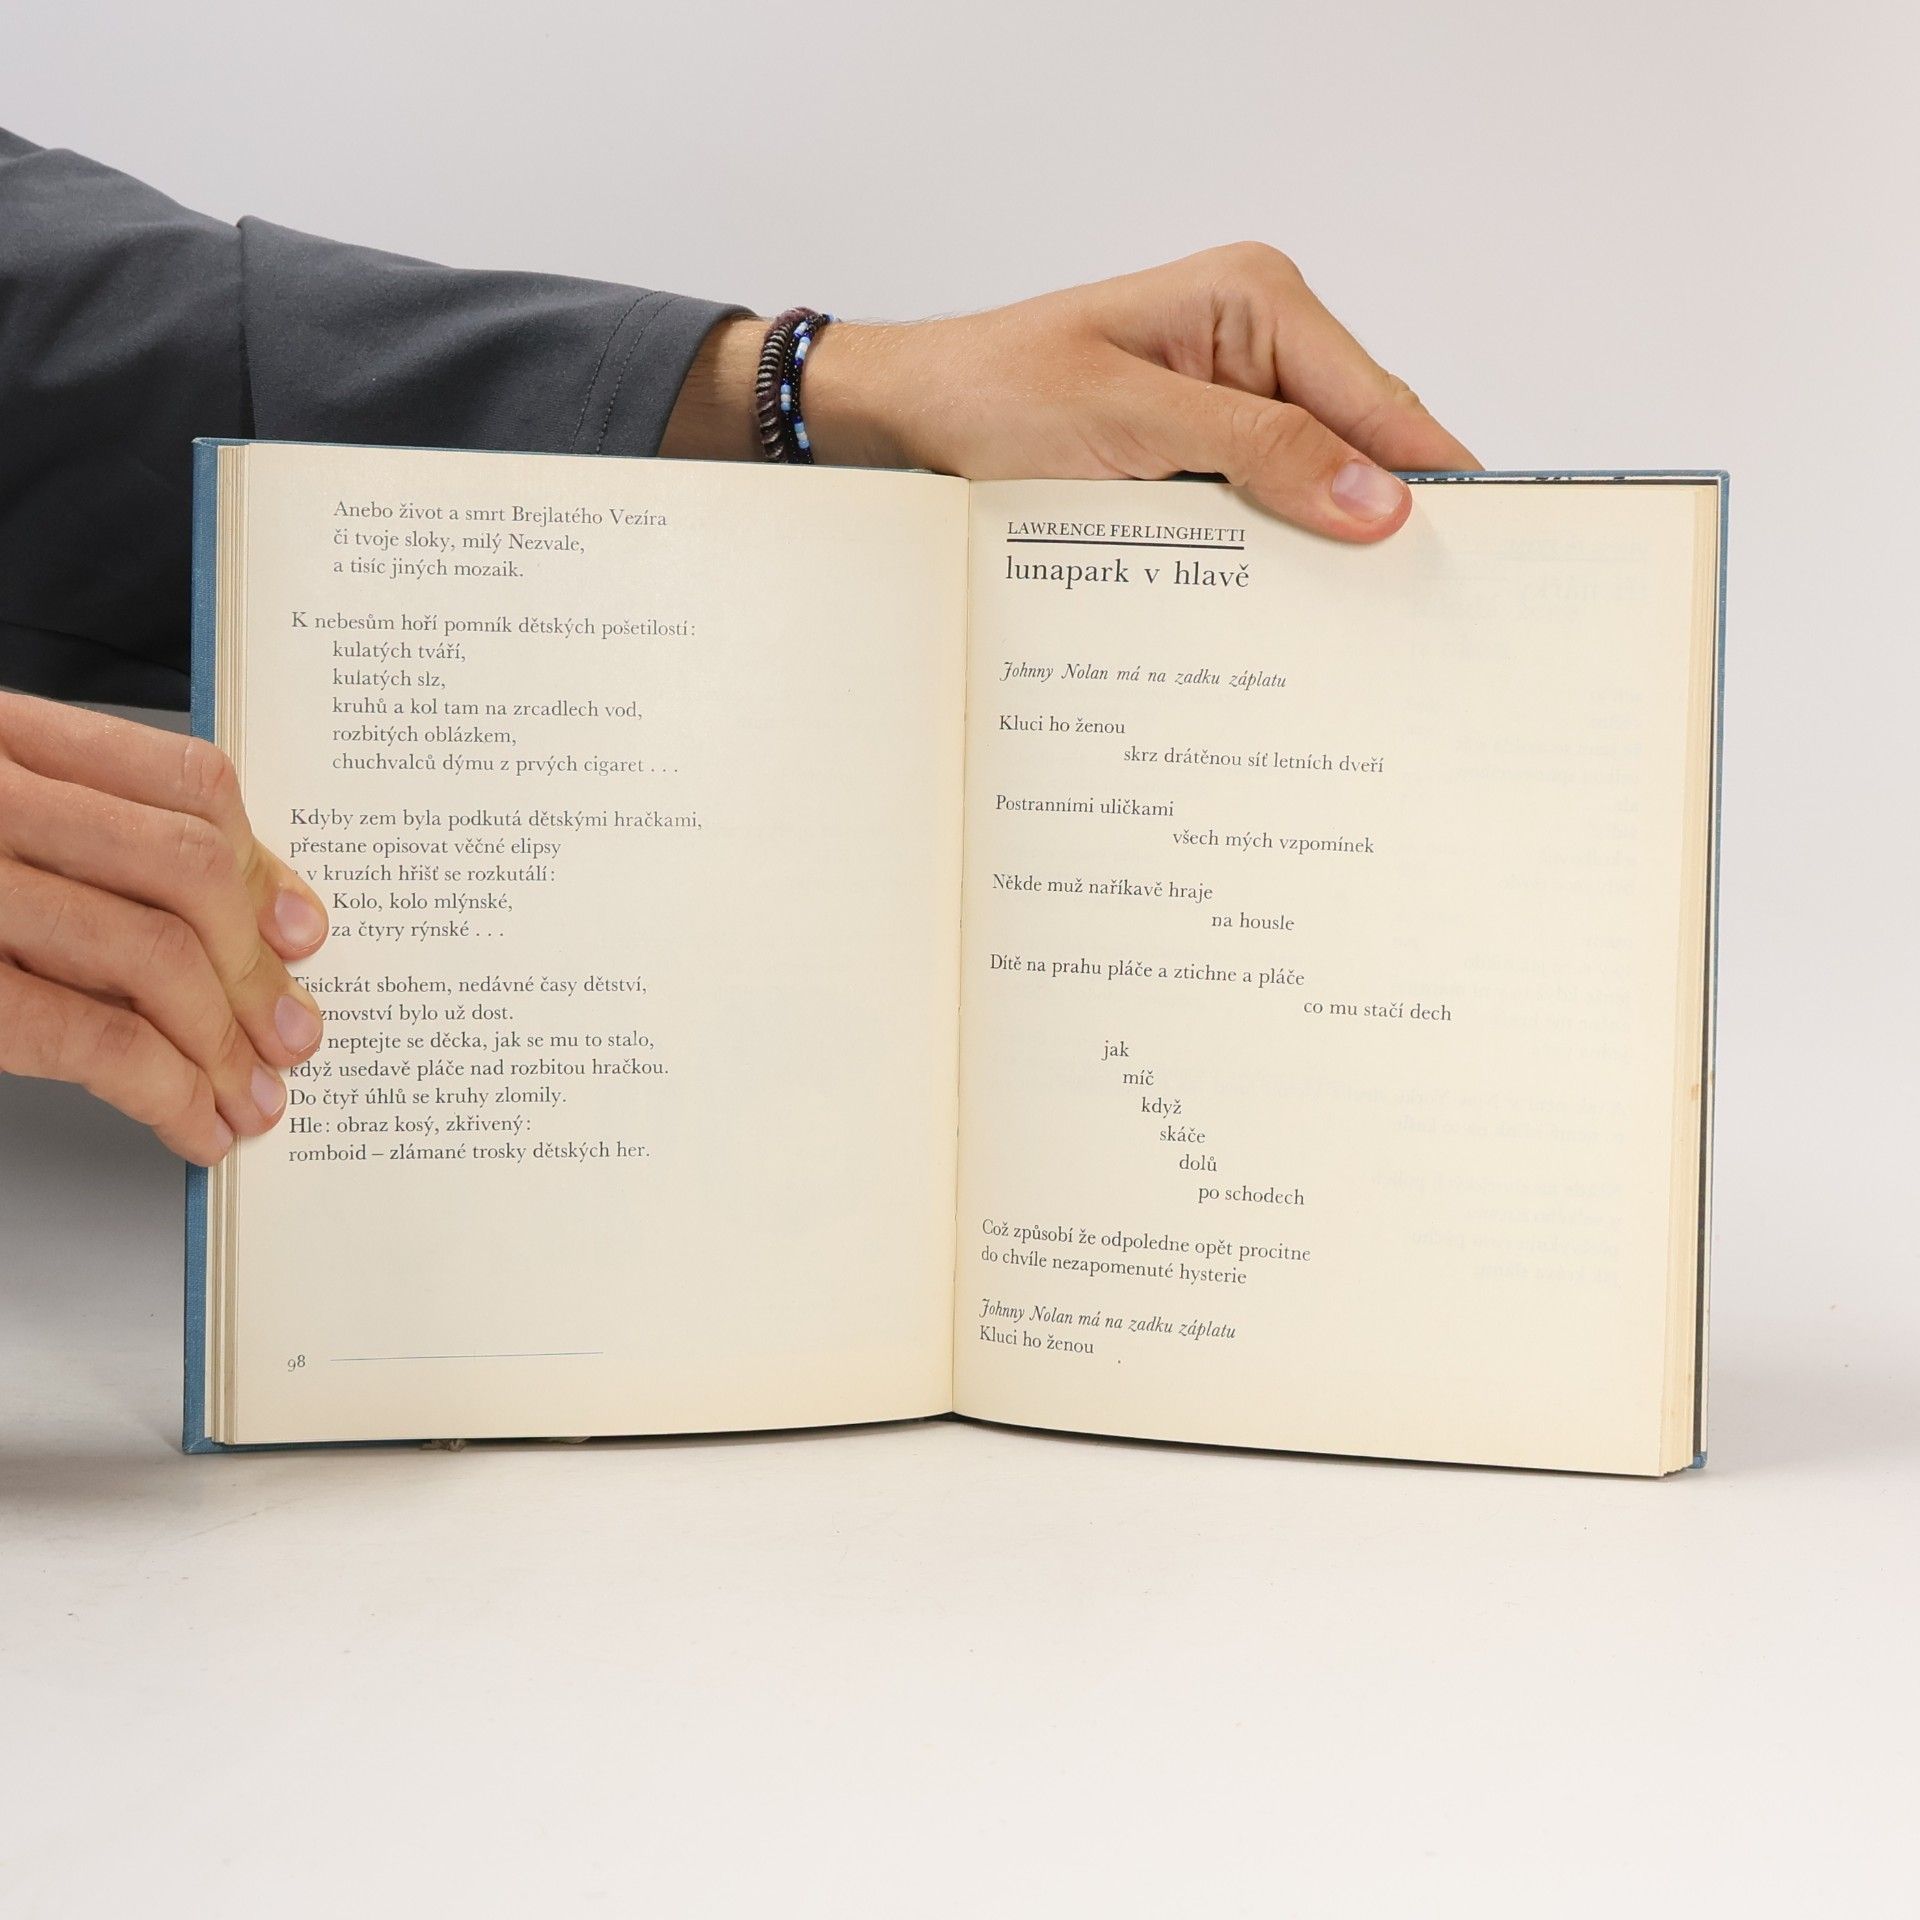 Anebo život a smrt Brejlatého Vezíra
či tvoje sloky, milý Nezvale,
a tisíc jiných mozaik.
K nebesům hoří pomník dětských pošetilostí:
kulatých tváří,
kulatých slz,
kruhů a kol tam na zrcadlech vod,
rozbitých oblázkem,
chuchvalců dýmu z prvých cigaret . . .
Kdyby zem byla podkutá dětskými hračkami,
přestane opisovat věčné elipsy
v kruzích hřišť se rozkutálí:
Kolo, kolo mlýnské,
za čtyry rýnské . . .
Tisíckrát sbohem, nedávné časy dětství,
bylo už dost.
neptejte se děcka, jak se mu to stalo,
když usedavě pláče nad rozbitou hračkou.
Do čtyř úhlů se kruhy zlomily.
Hle: obraz kosý, zkřivený:
romboid – zlámané trosky dětských her.
98
LAWRENCE FERLINGHETTI
lunapark v hlavě
Johnny Nolan má na zadku záplatu
Kluci ho ženou
skrz drátěnou síť letních dveří
Postranními uličkami
všech mých vzpomínek
Někde muž naříkavě hraje
na housle
Dítě na prahu pláče a ztichne a pláče
co mu stačí dech
jak
míč
když
skáče
dolů
po schodech
Což způsobí že odpoledne opět procitne
do chvíle nezapomenuté hysterie
Johnny Nolan má na zadku záplatu
Kluci ho ženou